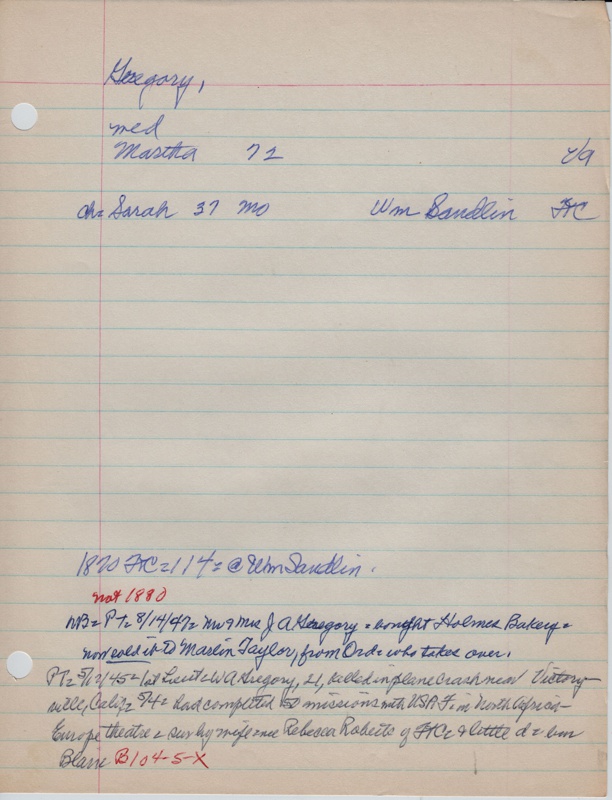 Gregory,
med
Martha 72 Va
ch= Sarah 37 Mo Wm Sandlin FtC
1870 FtC=114= @ Wm Sandlin.
not 1880
NB= PT= 8/14/47= Mr & Mrs J A Gregory = bought Holmes Bakery =
now sold it to Marlin Taylor, from Ord = who takes over.
PT= 5/17/45= 1st Lieut= W A Gregory, 21, killed in plane crash near Victory-
ville, Calif= 5/4= had completed 50 missions with USAF in North African-
Europe theatre = sur by wife nee Rebecca Roberts of FtC= & little d=
Blane B104-5-X